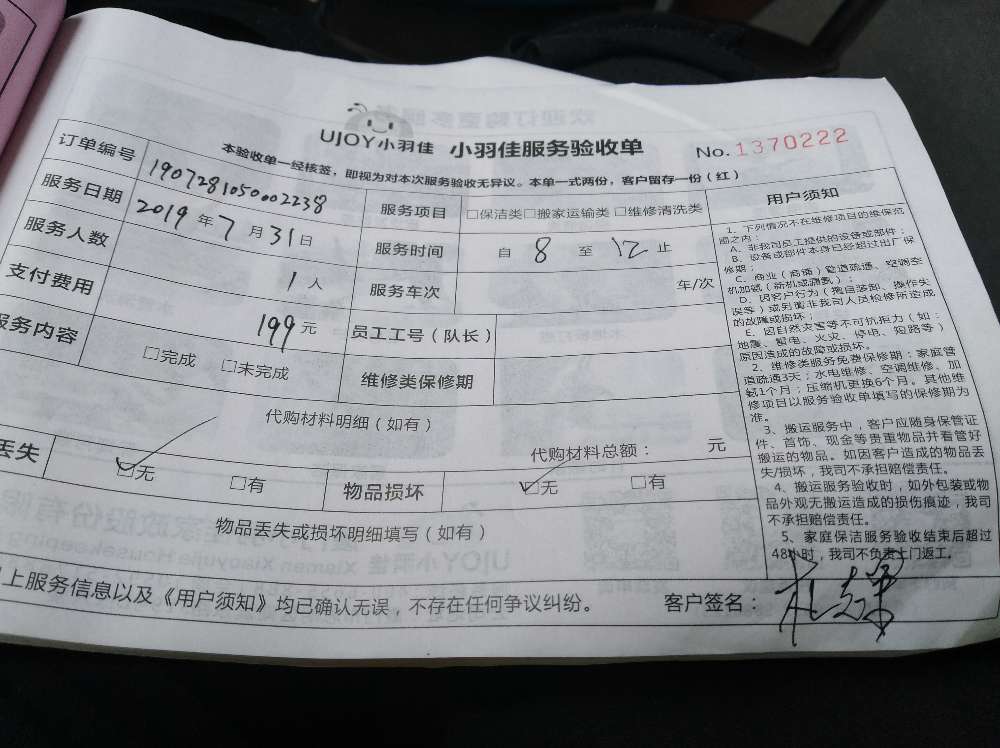 UJOY小羽佳 小羽佳服务验收单 No.1370222
本验收单一经核签，即视为对本次服务验收无异议。本单一式两份，客户留存一份（红）
订单编号 1907281050002238
服务项目 □保洁类□搬家运输类□维修清洗类
服务日期 2019年7月31日
服务时间 自 8 至 12 止
服务人数 1人
服务车次 车/次
支付费用 199元
员工工号（队长）
服务内容 □完成 □未完成
维修类保修期
代购材料明细（如有）
代购材料总额： 元
丢失 ☑无 □有
物品损坏 ☑无 □有
物品丢失或损坏明细填写（如有）
上服务信息以及《用户须知》均已确认无误，不存在任何争议纠纷。
客户签名：
用户须知
1、下列情况不在维修项目的维保范
围之内：
A、非我司员工提供的设备或部件；
B、设备或部件本身已经超过出厂保
修期；
C、商业（商铺）管道疏通、空调空
机加氨（新机或漏氨）；
D、因客户行为（擅自装卸、操作失
误等）或另请非我司人员检修所造成
的故障或损坏；
E、因自然灾害等不可抗拒力（如：
地震、雷电、火灾、停电、短路等）
原因造成的故障或损坏。
2、维修类服务免费保修期：家庭管
道疏通3天；水电维修、空调维修、加
氨1个月；压缩机更换6个月。其他维
修项目以服务验收单填写的保修期为
准。
3、搬运服务中，客户应随身保管证
件、首饰、现金等贵重物品并看管好
搬运的物品。如因客户造成的物品丢
失/损坏，我司不承担赔偿责任。
4、搬运服务验收时，如外包装或物
品外观无搬运造成的损伤痕迹，我司
不承担赔偿责任。
5、家庭保洁服务验收结束后超过
48小时，我司不负责上门返工。